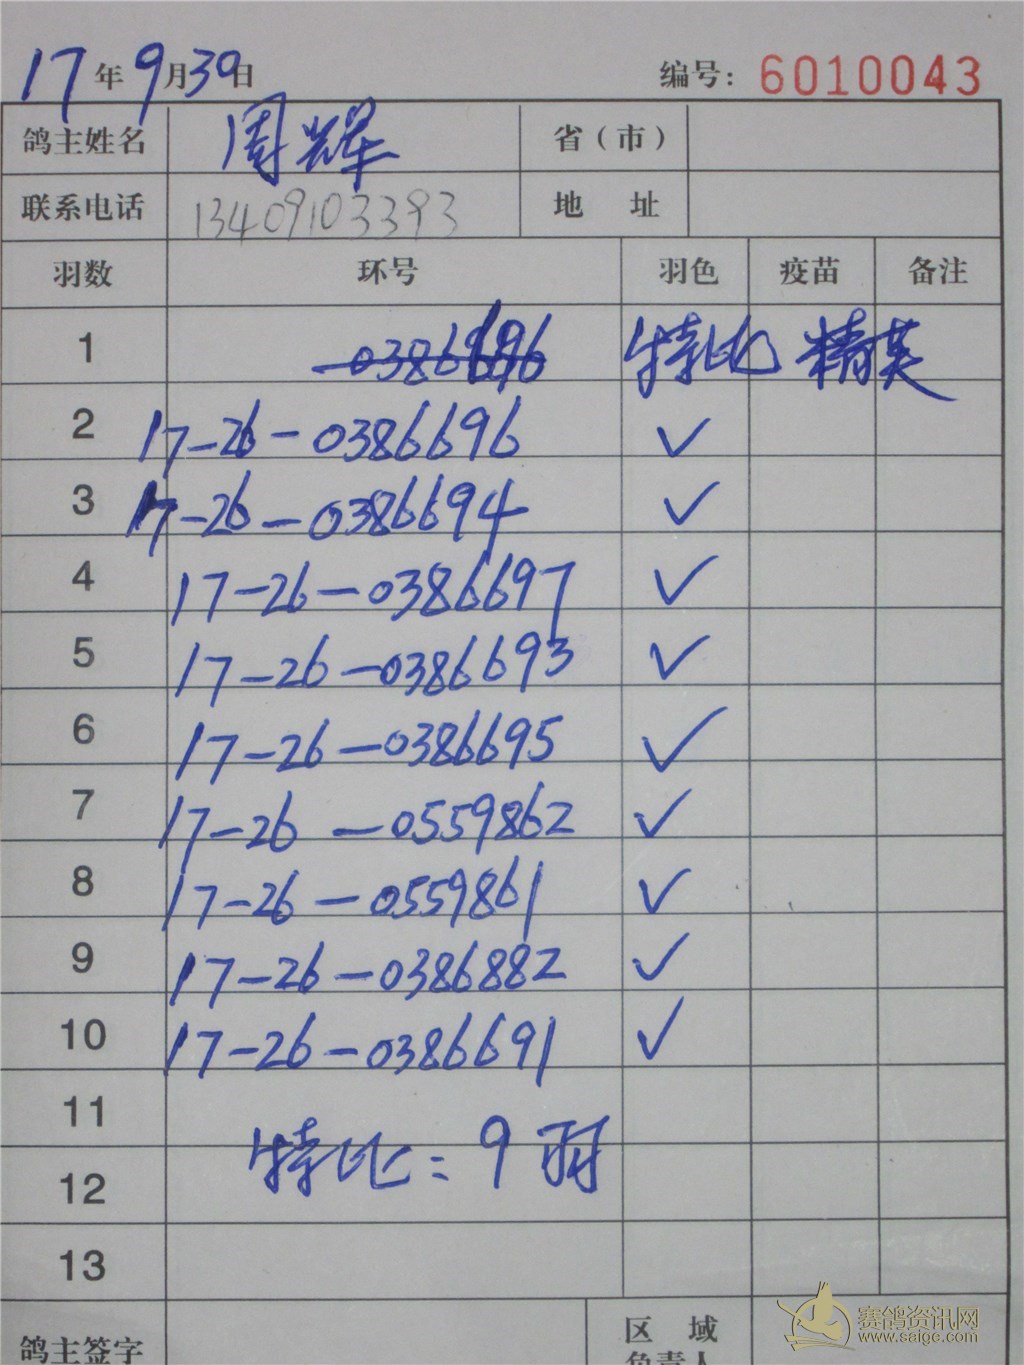 17年9月30日 编号: 6010043
鸽主姓名 周辉 省(市)
联系电话 13409103393 地 址
羽数 环号 羽色 疫苗 备注
1 特比 精英
2 17-26-0386696 ✓
3 17-26-0386694 ✓
4 17-26-0386697 ✓
5 17-26-0386693 ✓
6 17-26-0386695 ✓
7 17-26-0559862 ✓
8 17-26-0559861 ✓
9 17-26-0386882 ✓
10 17-26-0386691 ✓
11
特比: 9羽
12
13
鸽主签字 区 域
负责人
赛鸽资讯网
www.saige.com